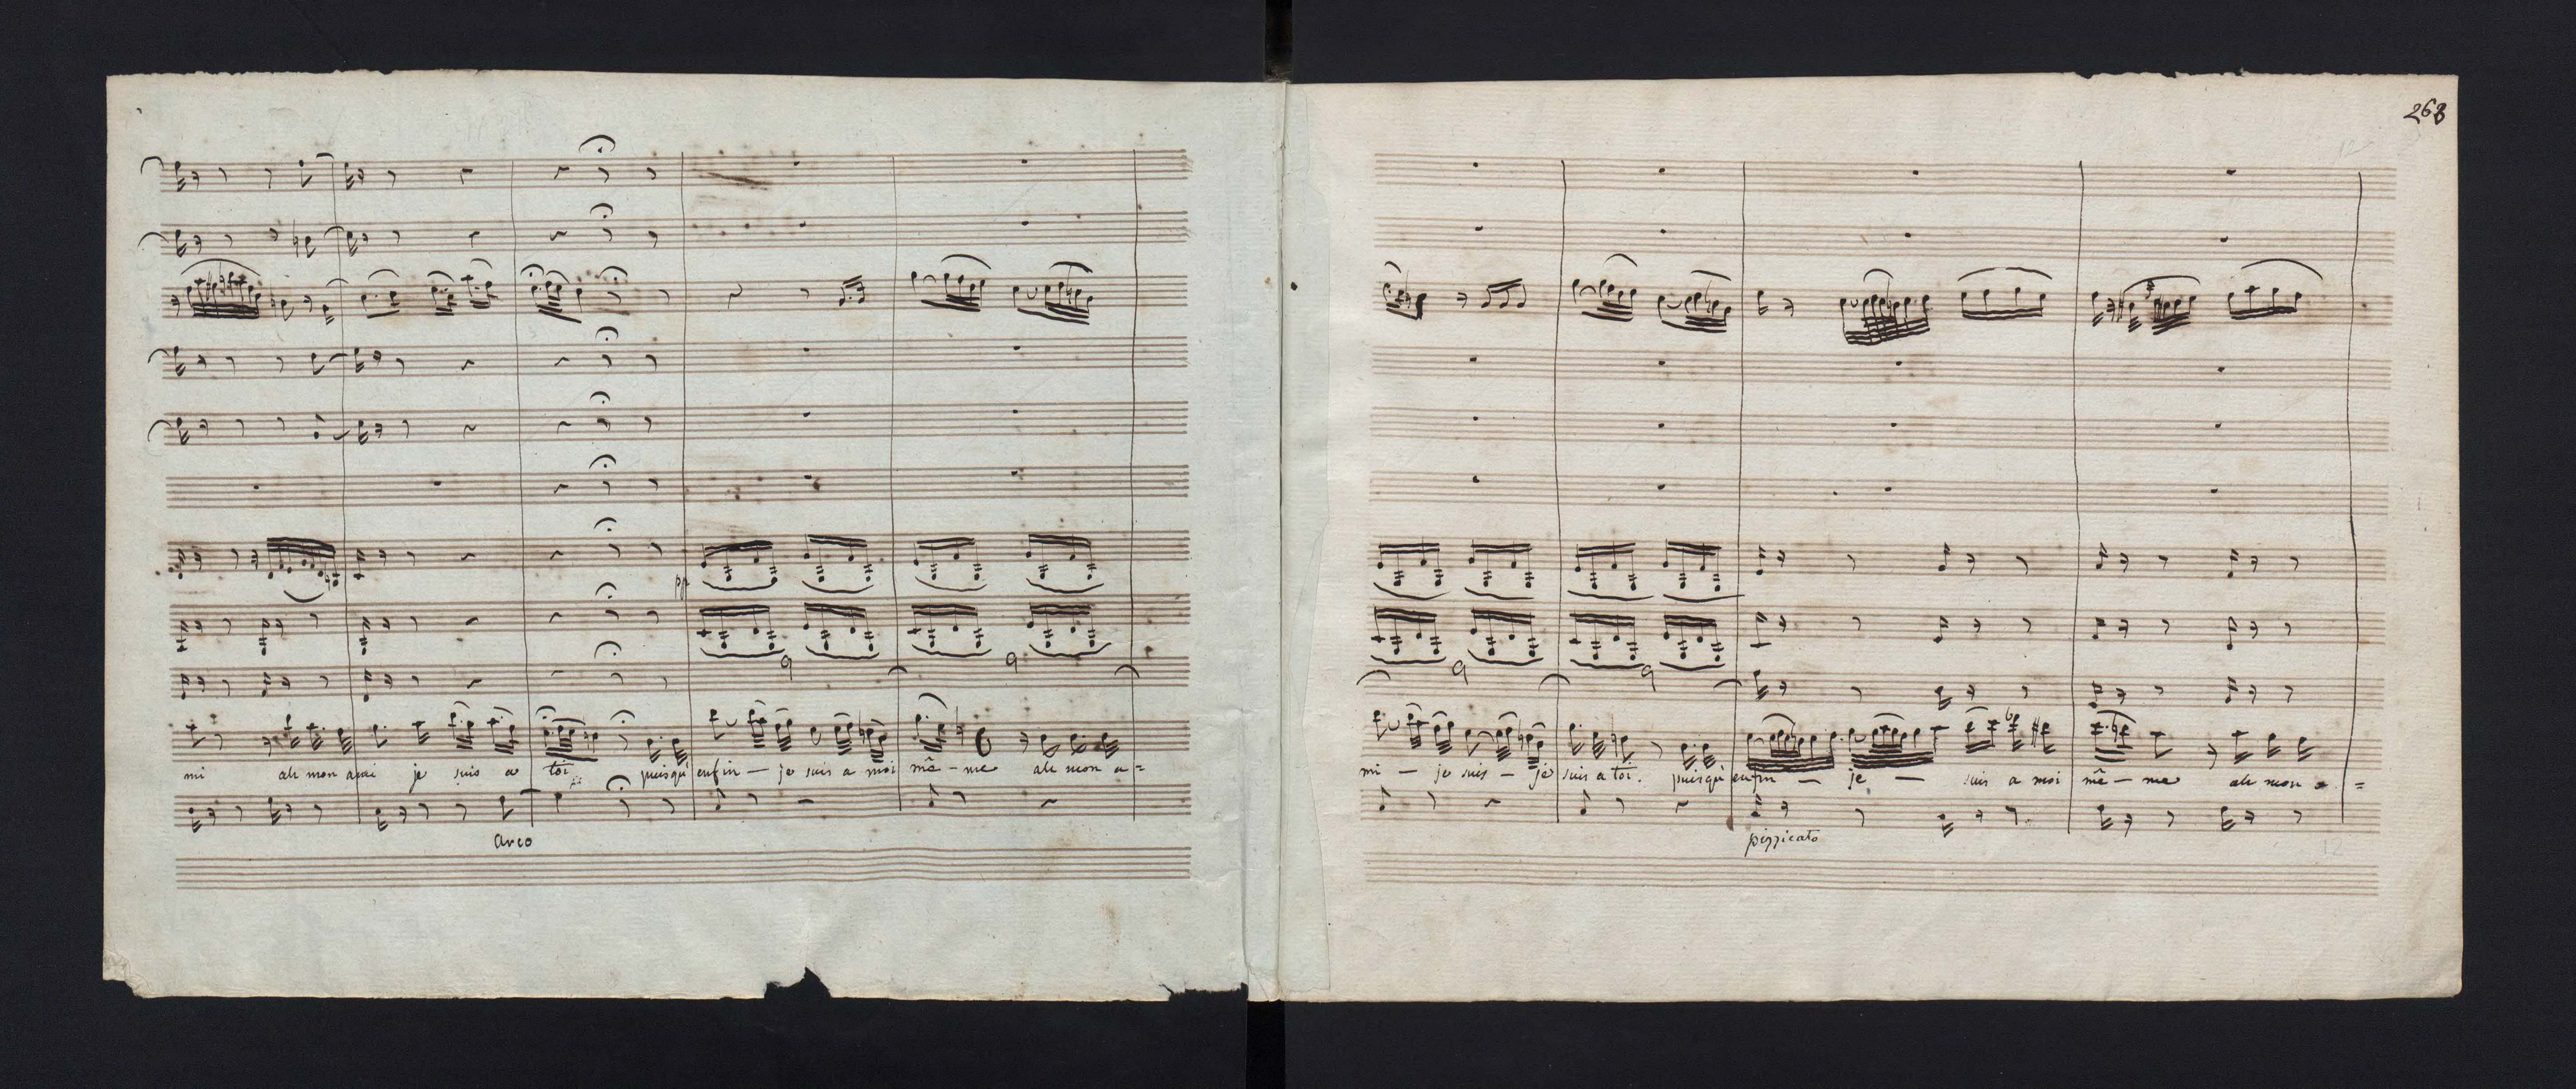 268
pp
mi ah mon ami je suis a toi puisqu'enfin — je suis a moi mê - me ah mon a =
arco
mi — je suis — je suis a toi. puisqu'enfin — je — suis a moi mê - me ah mon a =
pizzicato
12